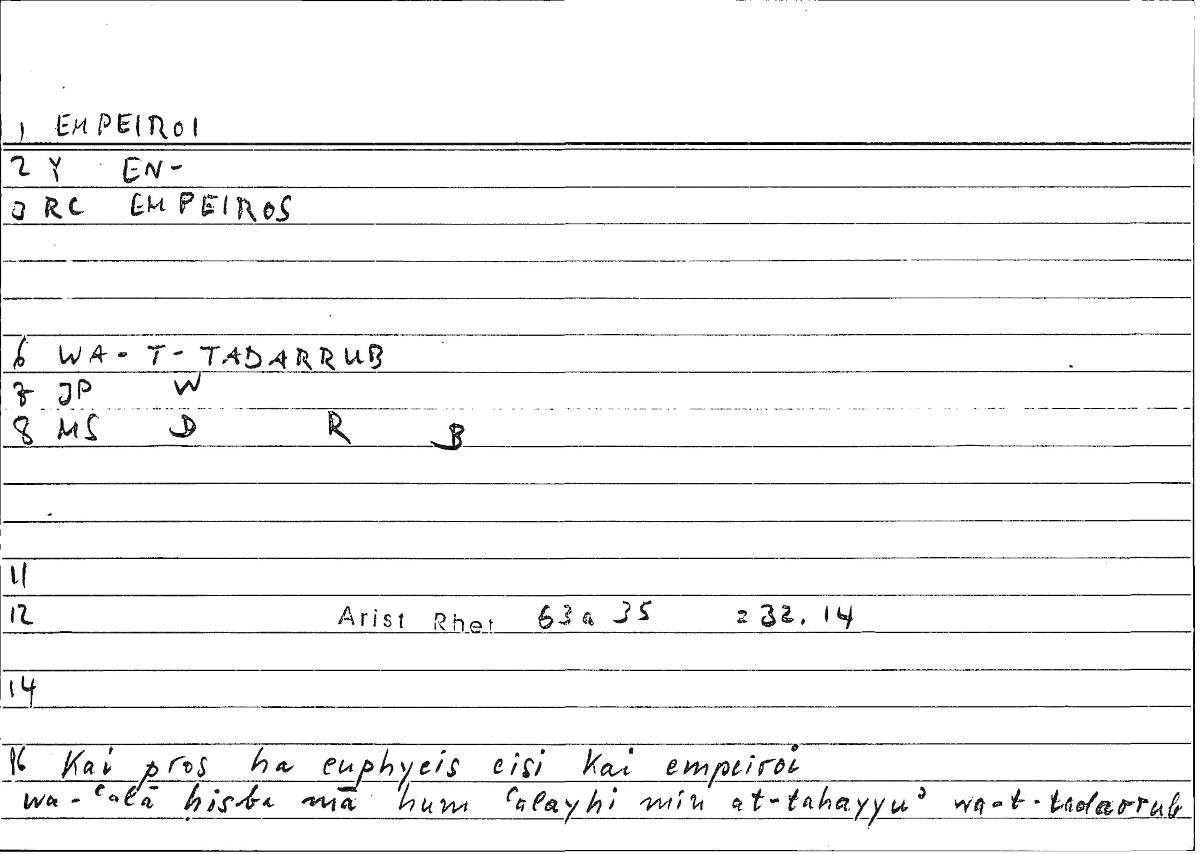 1 EMPEIROI
2 Y EN-
3 RC EMPEIROS
6 WA-T-TADARRUB
7 JP W
8 MS D R B
11
12 Arist Rhet 63a 35 = 32.14
14
16 Kai pros ha euphyeis eisi kai empeiroi
wa-ʿalā ḥisba mā hum ʿalayhi min at-tahayyuʾ wa-t-tadarrub